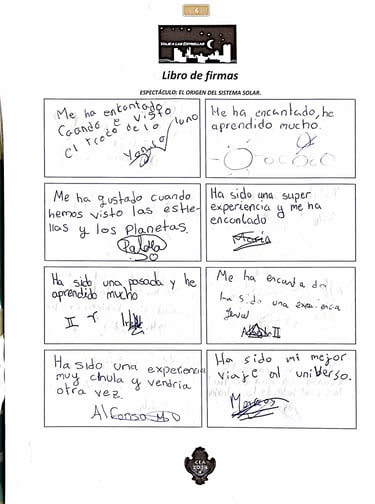 6
VIAJE A LAS ESTRELLAS
Libro de firmas
ESPECTÁCULO: EL ORIGEN DEL SISTEMA SOLAR.
Me ha encantado
Cuando e visto
el trozo de la luna
Me ha encantado, he
aprendido mucho.
Me ha gustado cuando
hemos visto las estre-
llas y los Planetas.
Ha sido una super
experencia y me ha
encontado
María
Ha sido una pasada y he
aprendido mucho
Me ha encanta do
ha sido una experencia
Ha sido una experencia
muy chula y vendria
otra vez.
Alfonso M
Ha sido mi mejor
viaje al universo.
Marcos
CEA